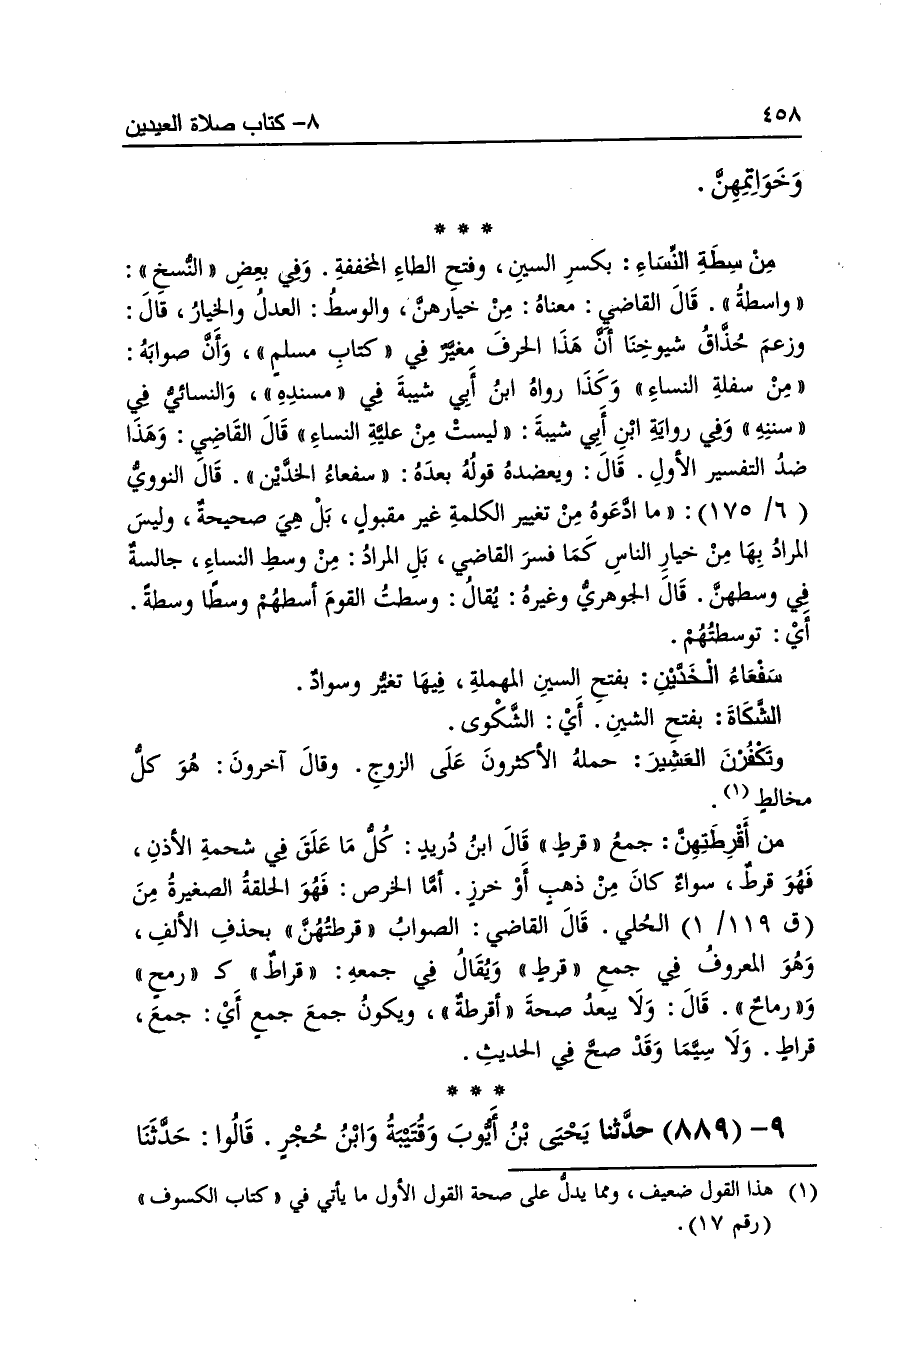 ٤٥٨
٨- كتاب صلاة العيدين
وَخَوَاتِمِهِنَّ .
* * *
مِنْ سِطَةِ النِّسَاءِ : بكسرِ السينِ ، وفتحِ الطاءِ المخففةِ . وَفِي بعضِ « النُّسخِ » :
« واسطةُ » . قَالَ القاضي : معناهُ : مِنْ خيارهنَّ ، والوسطُ : العدلُ والخيارُ ، قَالَ :
وزعمَ حُذَّاقُ شيوخِنَا أَنَّ هَذَا الحرفَ مغيَّرٌ فِي « كتابِ مسلمٍ » ، وَأَنَّ صوابَهُ :
« مِنْ سفلةِ النساءِ » وَكَذَا رواهُ ابنُ أَبِي شيبةَ فِي « مسندِهِ » ، وَالنسائيُّ فِي
« سننِهِ » وَفِي روايَةِ ابْنِ أَبِي شيبةَ : « ليستْ مِنْ عليَّةِ النساءِ » قَالَ القَاضِي : وَهَذَا
ضدُ التفسيرِ الأولِ . قَالَ : ويعضدهُ قولُهُ بعدَهُ : « سفعاءُ الخدَّيْنِ » . قَالَ النوويُّ
( ٦/ ١٧٥) : « ما ادَّعَوهُ مِنْ تغييرِ الكلمةِ غير مقبولٍ ، بَلْ هِيَ صحيحةٌ ، وليسَ
المرادُ بِهَا مِنْ خيارِ الناسِ كَمَا فسرَ القاضي ، بَلِ المرادُ : مِنْ وسطِ النساءِ ، جالسةٌ
فِي وسطهنَّ . قَالَ الجوهريُّ وغيرهُ : يُقالُ : وسطتُ القومَ أسطهُمْ وسطًا وسطةً .
أَيْ : توسطتُهُمْ .
سَفْعَاءُ الْخَدَّيْنِ : بفتحِ السينِ المهملةِ ، فِيهَا تغيُّر وسوادٌ .
الشَّكَاةَ : بفتحِ الشينِ . أَيْ : الشَّكْوى .
وتَكْفُرْنَ العَشِيرَ : حملهُ الأكثرونَ عَلَى الزوجِ . وقالَ آخرونَ : هُوَ كلُّ
مخالطٍ (١) .
من أَقْرِطَتِهِنَّ : جمعُ « قرطٍ » قَالَ ابنُ دُريدٍ : كُلُّ مَا عَلَقَ فِي شحمةِ الأذنِ ،
فَهُوَ قرطٌ ، سواءٌ كانَ مِنْ ذهبٍ أَوْ خرزٍ . أمَّا الخرص : فَهُوَ الحلقةُ الصغيرةُ مِنَ
(ق ١١٩/ ١) الحُلي . قَالَ القاضي : الصوابُ « قرطتُهُنَّ » بحذفِ الألفِ ،
وَهُوَ المعروفُ فِي جمعِ « قرطٍ » وَيُقَالُ فِي جمعهِ : « قراطٌ » كـ « رمحٍ »
وَ« رماحٌ » . قَالَ : وَلَا يبعدُ صحةَ « أقرطةٌ » ، ويكونُ جمعَ جمعٍ أَيْ : جمعَ ،
قراطٍ . وَلَا سِيَّمَا وَقَدْ صحَّ فِي الحديثِ .
* * *
٩- (٨٨٩) حدَّثنا يَحْيَى بْنُ أَيُّوبَ وَقُتَيْبَةُ وَابْنُ حُجْرٍ . قَالُوا : حَدَّثَنَا
(١) هذا القول ضعيف ، ومما يدلُّ على صحة القول الأول ما يأتي في « كتاب الكسوف »
(رقم ١٧) .